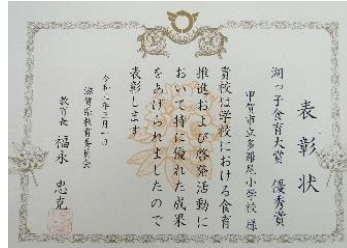 表彰状
湖っ子食育大賞 優秀賞
甲賀市立多羅尾小学校 様
貴校は学校における食育
推進および啓発活動に
おいて特に優れた成果
をあげられましたので
表彰します
滋賀県教育委員会
教育長 福永 忠克